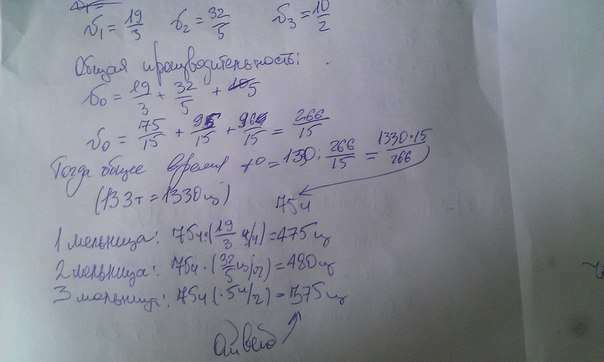 v₁ = 19/3   v₂ = 32/5   v₃ = 10/2
Общая производительность:
v₀ = 19/3 + 32/5 + 5
v₀ = 75/15 + 95/15 + 96/15 = 266/15
Тогда общее время t₀ = 1330 : 266/15 = 1330·15/266
(133т = 1330ц)   75ч
1 мельница: 75ч·(19/3 ц/ч) = 475ц
2 мельница: 75ч·(32/5 ц/ч) = 480ц
3 мельница: 75ч(·5ц/2) = 375ц
Ответ